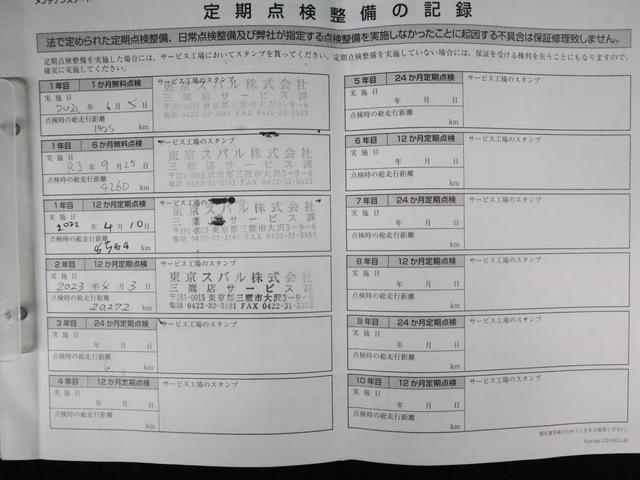 メンテナンスノート
定期点検整備の記録
法で定められた定期点検整備、日常点検整備及び弊社が指定する点検整備を実施しなかったことに起因する不具合は保証修理致しません。
定期点検整備を実施した場合には、サービス工場においてスタンプを貰ってください。定期点検整備を実施していない場合には、保証を受ける権利を失うことにもなりますので、
確実に実施してください。
1年目 1か月無料点検
実施日
2021年6月5日
点検時の総走行距離
1925 km
サービス工場のスタンプ
東京スバル株式会社
三鷹店サービス課
〒181-0015 東京都三鷹市大沢3-9-6
0422-32-3181 FAX 0422-31-5553
1年目 6か月無料点検
実施日
R3年9月25日
点検時の総走行距離
4260 km
サービス工場のスタンプ
東京スバル株式会社
三鷹店サービス課
〒181-0015 東京都三鷹市大沢3-9-6
電話 0422-32-3181 FAX 0422-31-5553
1年目 12か月定期点検
実施日
2022年4月10日
点検時の総走行距離
km
サービス工場のスタンプ
東京スバル株式会社
三鷹店サービス課
〒181-0015 東京都三鷹市大沢3-9-6
電話 0422-32-3181 FAX 0422-31-5553
2年目 12か月定期点検
実施日
2023年4月3日
点検時の総走行距離
20,272 km
サービス工場のスタンプ
東京スバル株式会社
三鷹店サービス課
〒181-0015 東京都三鷹市大沢3-9-6
電話 0422-32-3181 FAX 0422-31-5553
3年目 24か月定期点検
実施日
年 月 日
点検時の総走行距離
km
サービス工場のスタンプ
4年目 12か月定期点検
実施日
年 月 日
点検時の総走行距離
km
サービス工場のスタンプ
5年目 24か月定期点検
実施日
年 月 日
点検時の総走行距離
km
サービス工場のスタンプ
6年目 12か月定期点検
実施日
年 月 日
点検時の総走行距離
km
サービス工場のスタンプ
7年目 24か月定期点検
実施日
年 月 日
点検時の総走行距離
km
サービス工場のスタンプ
8年目 12か月定期点検
実施日
年 月 日
点検時の総走行距離
km
サービス工場のスタンプ
9年目 24か月定期点検
実施日
年 月 日
点検時の総走行距離
km
サービス工場のスタンプ
10年目 12か月定期点検
実施日
年 月 日
点検時の総走行距離
km
サービス工場のスタンプ